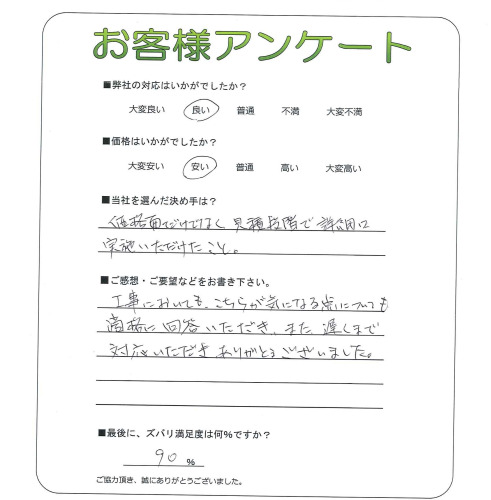 お客様アンケート
■弊社の対応はいかがでしたか？
大変良い 良い 普通 不満 大変不満
■価格はいかがでしたか？
大変安い 安い 普通 高い 大変高い
■当社を選んだ決め手は？
価格面だけでなく 見積段階で 詳細に
実施いただけたこと。
■ご感想・ご要望などをお書き下さい。
工事においても、こちらが気になる点についても
に回答いただき、また 遅くまで
対応いただき ありがとうございました。
■最後に、ズバリ満足度は何%ですか？
90 %
ご協力頂き、誠にありがとうございました。